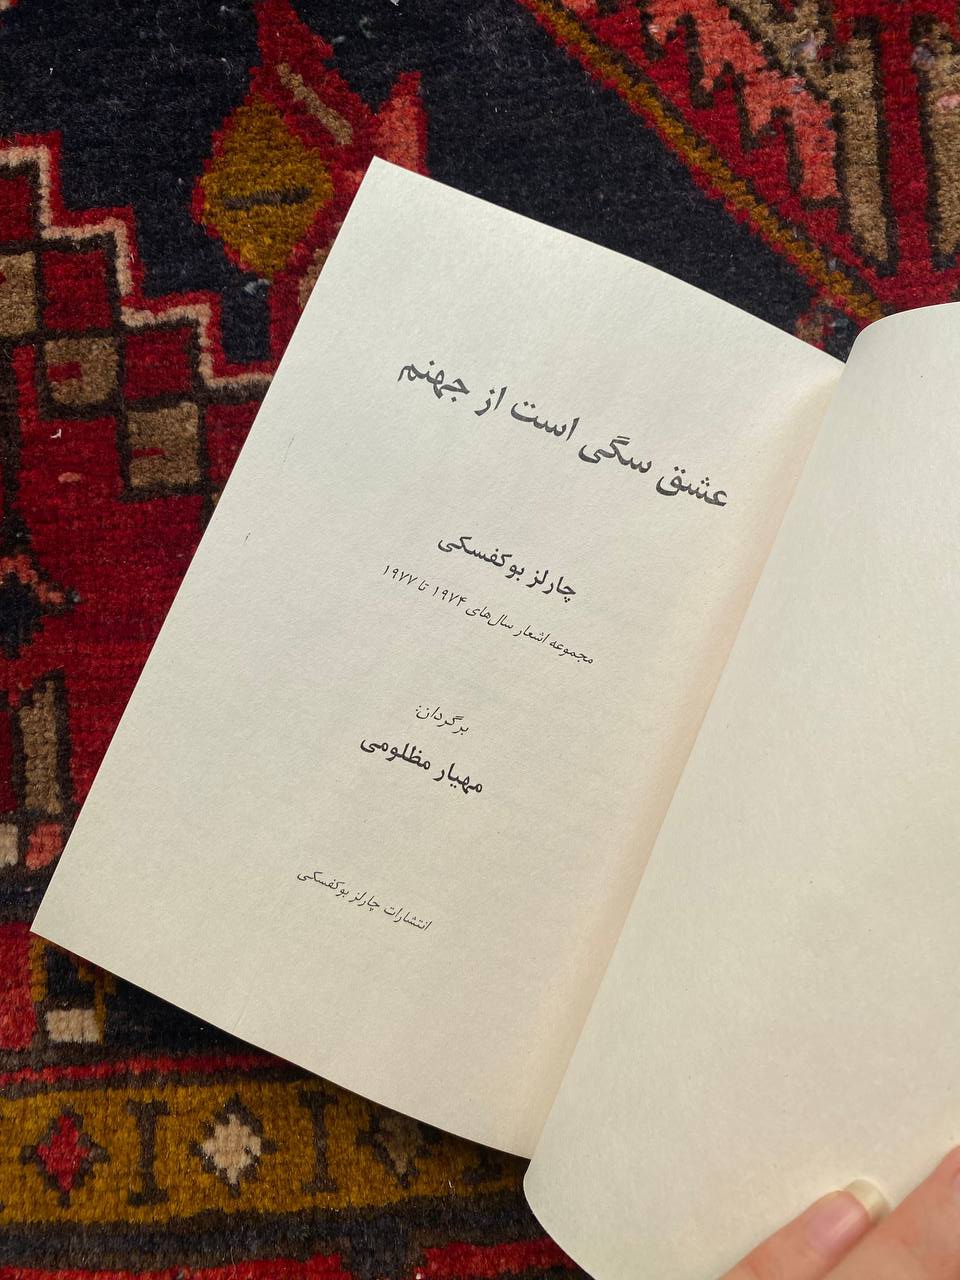 عشق سگی است از جهنم
چارلز بوکفسکی
مجموعه اشعار سال‌های ۱۹۷۴ تا ۱۹۷۷
برگردان:
مهیار مظلومی
انتشارات چارلز بوکفسکی